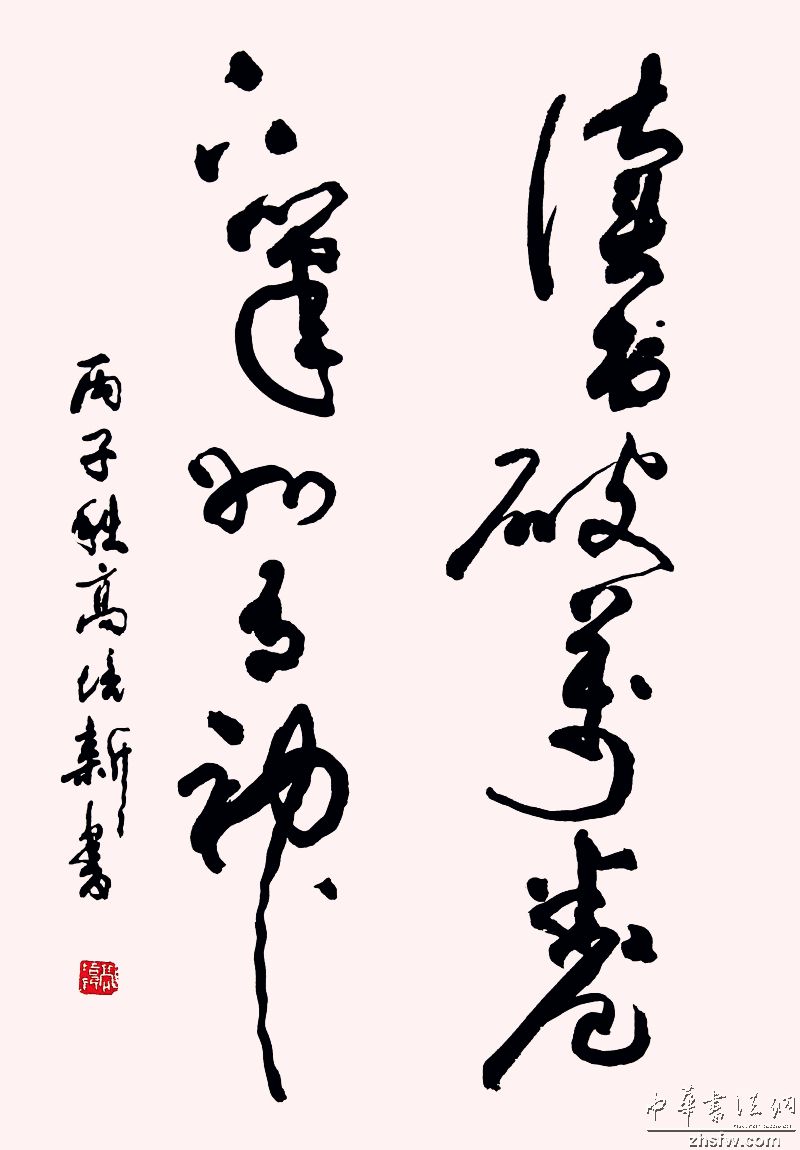 读书破萬卷
下筆如有神
丙子秋高培新書
中華書法網
zhsfw.com